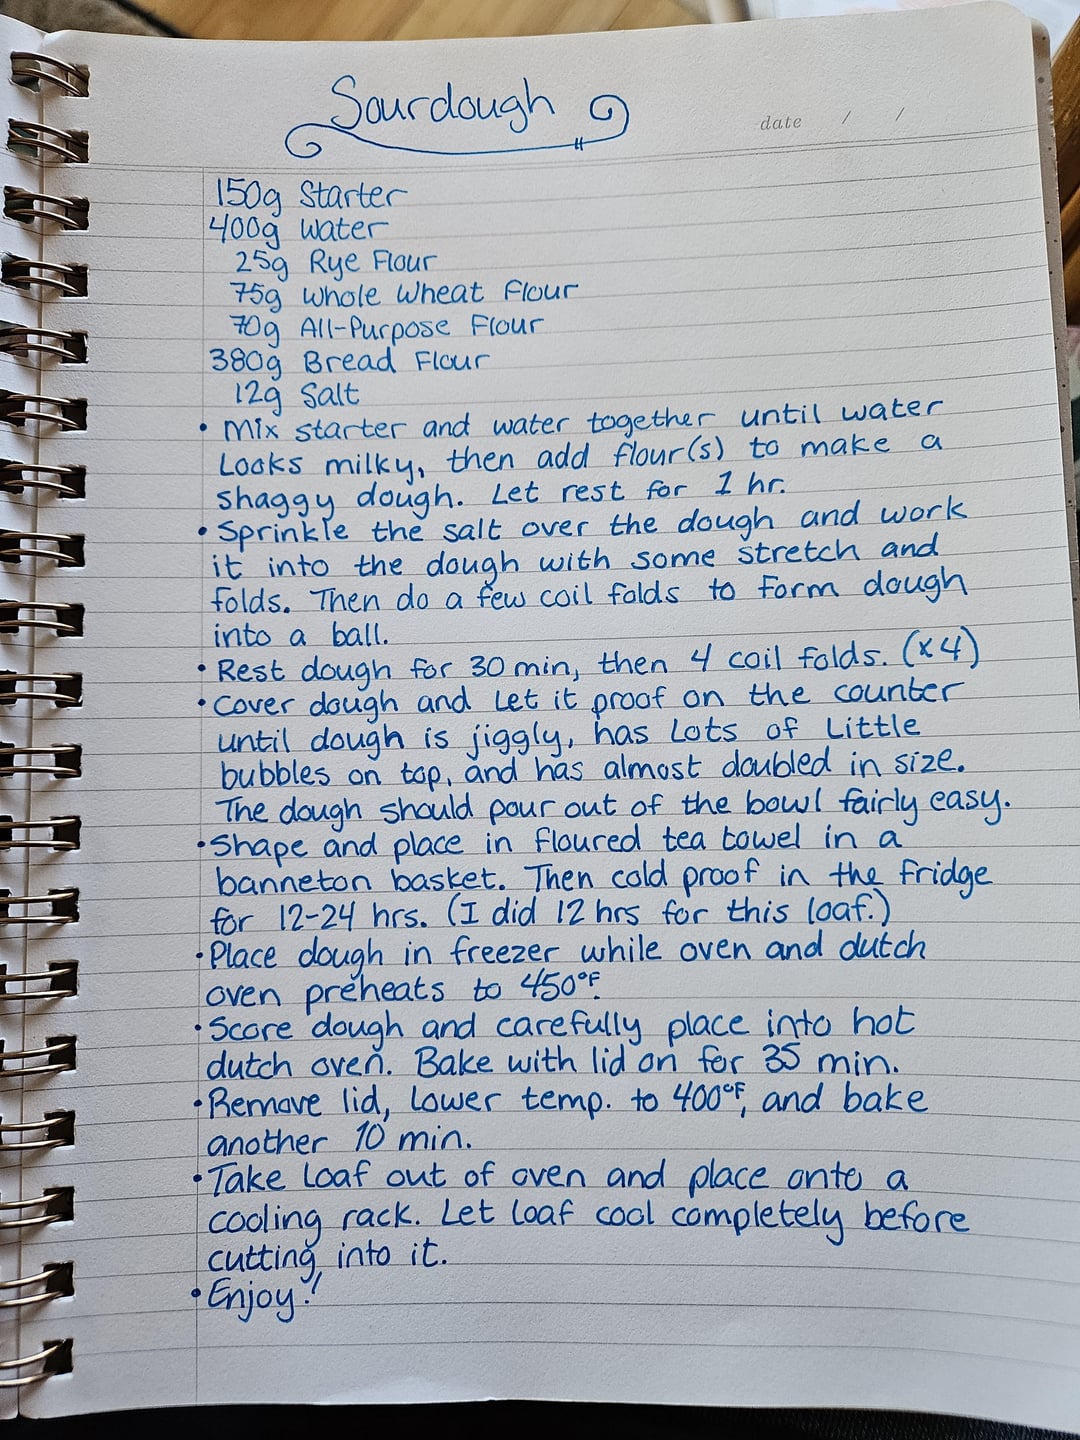 Sourdough
date / /
150g Starter
400g Water
25g Rye Flour
75g Whole Wheat Flour
70g All-Purpose Flour
380g Bread Flour
12g Salt
• Mix starter and water together until water
Looks milky, then add flour(s) to make a
shaggy dough. Let rest for 1 hr.
• Sprinkle the salt over the dough and work
it into the dough with some stretch and
folds. Then do a few coil folds to form dough
into a ball.
• Rest dough for 30 min, then 4 coil folds. (x4)
• Cover dough and let it proof on the counter
until dough is jiggly, has lots of little
bubbles on top, and has almost doubled in size.
The dough should pour out of the bowl fairly easy.
• Shape and place in floured tea towel in a
banneton basket. Then cold proof in the fridge
for 12-24 hrs. (I did 12 hrs for this loaf.)
• Place dough in freezer while oven and dutch
oven preheats to 450°F.
• Score dough and carefully place into hot
dutch oven. Bake with lid on for 35 min.
• Remove lid, lower temp. to 400°F, and bake
another 10 min.
• Take loaf out of oven and place onto a
cooling rack. Let loaf cool completely before
cutting into it.
• Enjoy!